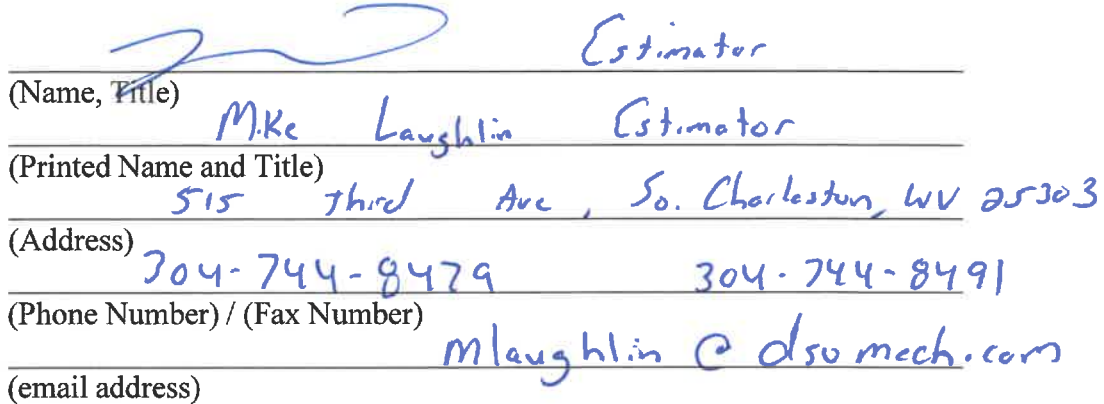 Estimator
(Name, Title)
Mike Laughlin Estimator
(Printed Name and Title)
515 Third Ave, So. Charleston, WV 25303
(Address)
304-744-8479 304-744-8491
(Phone Number) / (Fax Number)
mlaughlin@dsomech.com
(email address)